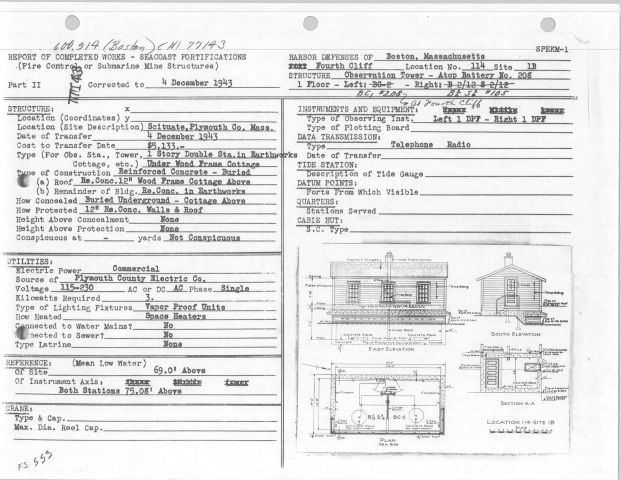 600,914 (Boston) CN1 77143
SPEKM-1
REPORT OF COMPLETED WORKS - SEACOAST FORTIFICATIONS
(Fire Control or Submarine Mine Structures)
Part II Corrected to 4 December 1943
HARBOR DEFENSES OF Boston, Massachusetts
FORT Fourth Cliff Location No. 114 Site 1B
STRUCTURE Observation Tower - Atop Battery No. 208
1 Floor - Left: BC-2 - Right: B 2/12 S 2/12
At Fourth Cliff
STRUCTURE: x
Location (Coordinates) y
Location (Site Description) Scituate, Plymouth Co. Mass.
Date of Transfer 4 December 1943
Cost to Transfer Date $5,133.-
Type (For Obs. Sta., Tower, 1 Story Double Sta. in Earthworks
Cottage, etc.) Under Wood Frame Cottage
Type of Construction Reinforced Concrete - Buried
(a) Roof Re.Conc. 12" Wood Frame Cottage Above
(b) Remainder of Bldg. Re.Conc. in Earthworks
How Concealed Buried Underground - Cottage Above
How Protected 12" Re.Conc. Walls & Roof
Height Above Concealment None
Height Above Protection None
Conspicuous at - yards Not Conspicuous
UTILITIES:
Electric Power Commercial
Source of Plymouth County Electric Co.
Voltage 115-230 AC or DC AC Phase Single
Kilowatts Required 3.
Type of Lighting Fixtures Vapor Proof Units
How Heated Space Heaters
Connected to Water Mains? No
Connected to Sewer? No
Type Latrine None
REFERENCE: (Mean Low Water)
Of Site 69.0' Above
Of Instrument Axis: Upper Middle Lower
Both Stations 75.08' Above
CRANE:
Type & Cap.
Max. Dia. Reel Cap.
FS 555
INSTRUMENTS AND EQUIPMENT: Upper Middle Lower
Type of Observing Inst. Left 1 DPF - Right 1 DPF
Type of Plotting Board
DATA TRANSMISSION:
Type Telephone Radio
Date of Transfer
TIDE STATION:
Description of Tide Gauge
DATUM POINTS:
Forts From Which Visible
QUARTERS:
Stations Served
CABLE HUT:
S.C. Type
EAST ELEVATION
SOUTH ELEVATION
SECTION A-A
PLAN
BC-2
LOCATION 114-SITE 1B